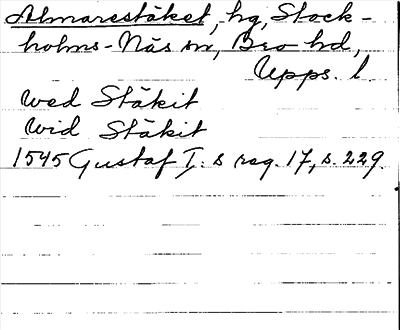 Almarestäket, hg, Stock-
holms-Näs sn, Bro hd,
Upps. l.
wed Stäkit
wid Stäkit
1545 Gustaf I:s reg. 17, s. 229.